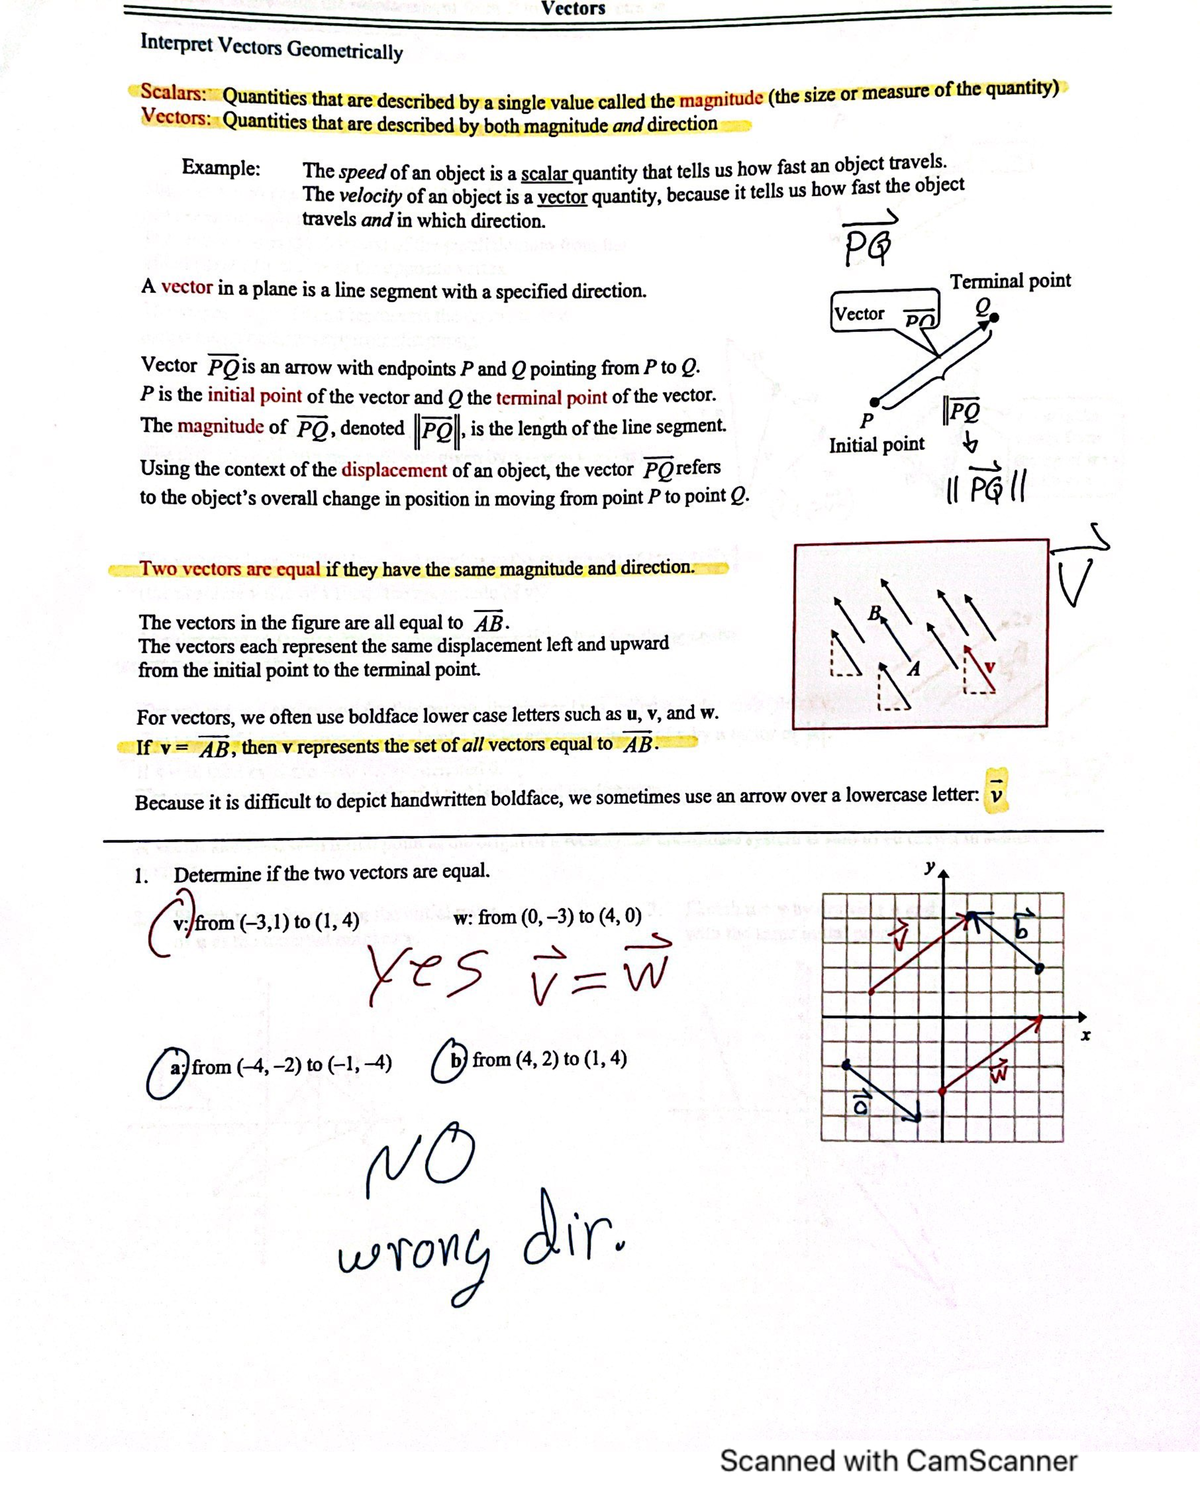 Vectors
Interpret Vectors Geometrically
Scalars: Quantities that are described by a single value called the magnitude (the size or measure of the quantity)
Vectors: Quantities that are described by both magnitude and direction
Example: The speed of an object is a scalar quantity that tells us how fast an object travels.
The velocity of an object is a vector quantity, because it tells us how fast the object
travels and in which direction.
PQ
A vector in a plane is a line segment with a specified direction.
Terminal point
Vector PQ
Q
Vector PQ is an arrow with endpoints P and Q pointing from P to Q.
P is the initial point of the vector and Q the terminal point of the vector.
The magnitude of PQ, denoted ||PQ||, is the length of the line segment.
P
Initial point
||PQ
||PQ||
Using the context of the displacement of an object, the vector PQ refers
to the object's overall change in position in moving from point P to point Q.
Two vectors are equal if they have the same magnitude and direction.
V
B
A
v
The vectors in the figure are all equal to AB.
The vectors each represent the same displacement left and upward
from the initial point to the terminal point.
For vectors, we often use boldface lower case letters such as u, v, and w.
If v = AB, then v represents the set of all vectors equal to AB.
Because it is difficult to depict handwritten boldface, we sometimes use an arrow over a lowercase letter: v⃗
1. Determine if the two vectors are equal.
v: from (–3,1) to (1, 4) w: from (0, –3) to (4, 0)
Yes v⃗ = w⃗
a: from (–4, –2) to (–1, –4) b) from (4, 2) to (1, 4)
NO
wrong dir.
y
x
v⃗
b⃗
w⃗
a⃗
Scanned with CamScanner